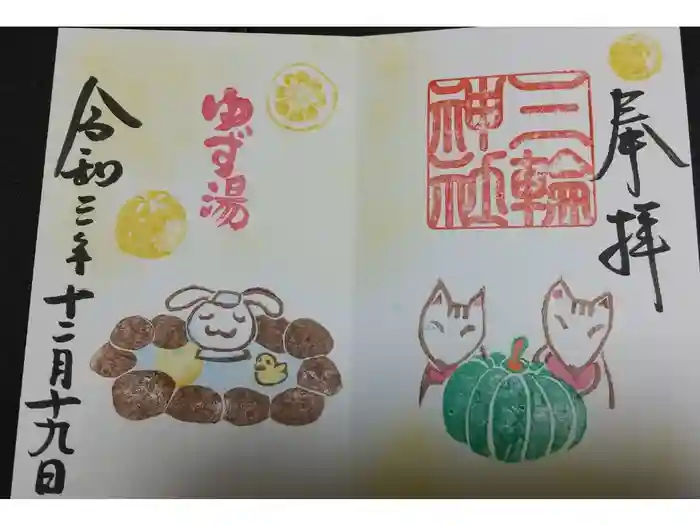 奉拝
三輪神社
ゆず湯
令和三年十二月十九日